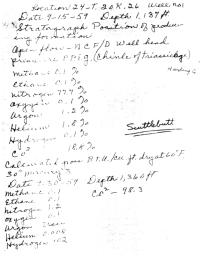 Location 24-T. 20 R. 26 Well no 1
Date 9-15-59 Depth 1,137 ft
Stratagraph Position of produc
ing formation
Open flow - N C F/D Well head
pressure P.S.i.g. (Chinle of triassic age)
Methane 0.1 %
Ethane 0.1 %
Nitrogen 77.7 %
Oxygen 0.1 %
Argon 1.2 %
Helium 1.8 %
Hydrogen 0.1 %
CO2 18.4 %
Scuttlebutt
Calculated gross B.T.U./cu ft. dry at 60° F
30" mercury 3
Date 9-30-59 Depth 1,360 ft
Methane 0.1
CO2 - 98.3
Ethane 0.1
Nitrogen 1.2
Oxygen 0.1
Argon Trace
Helium 0.008
Hydrogen